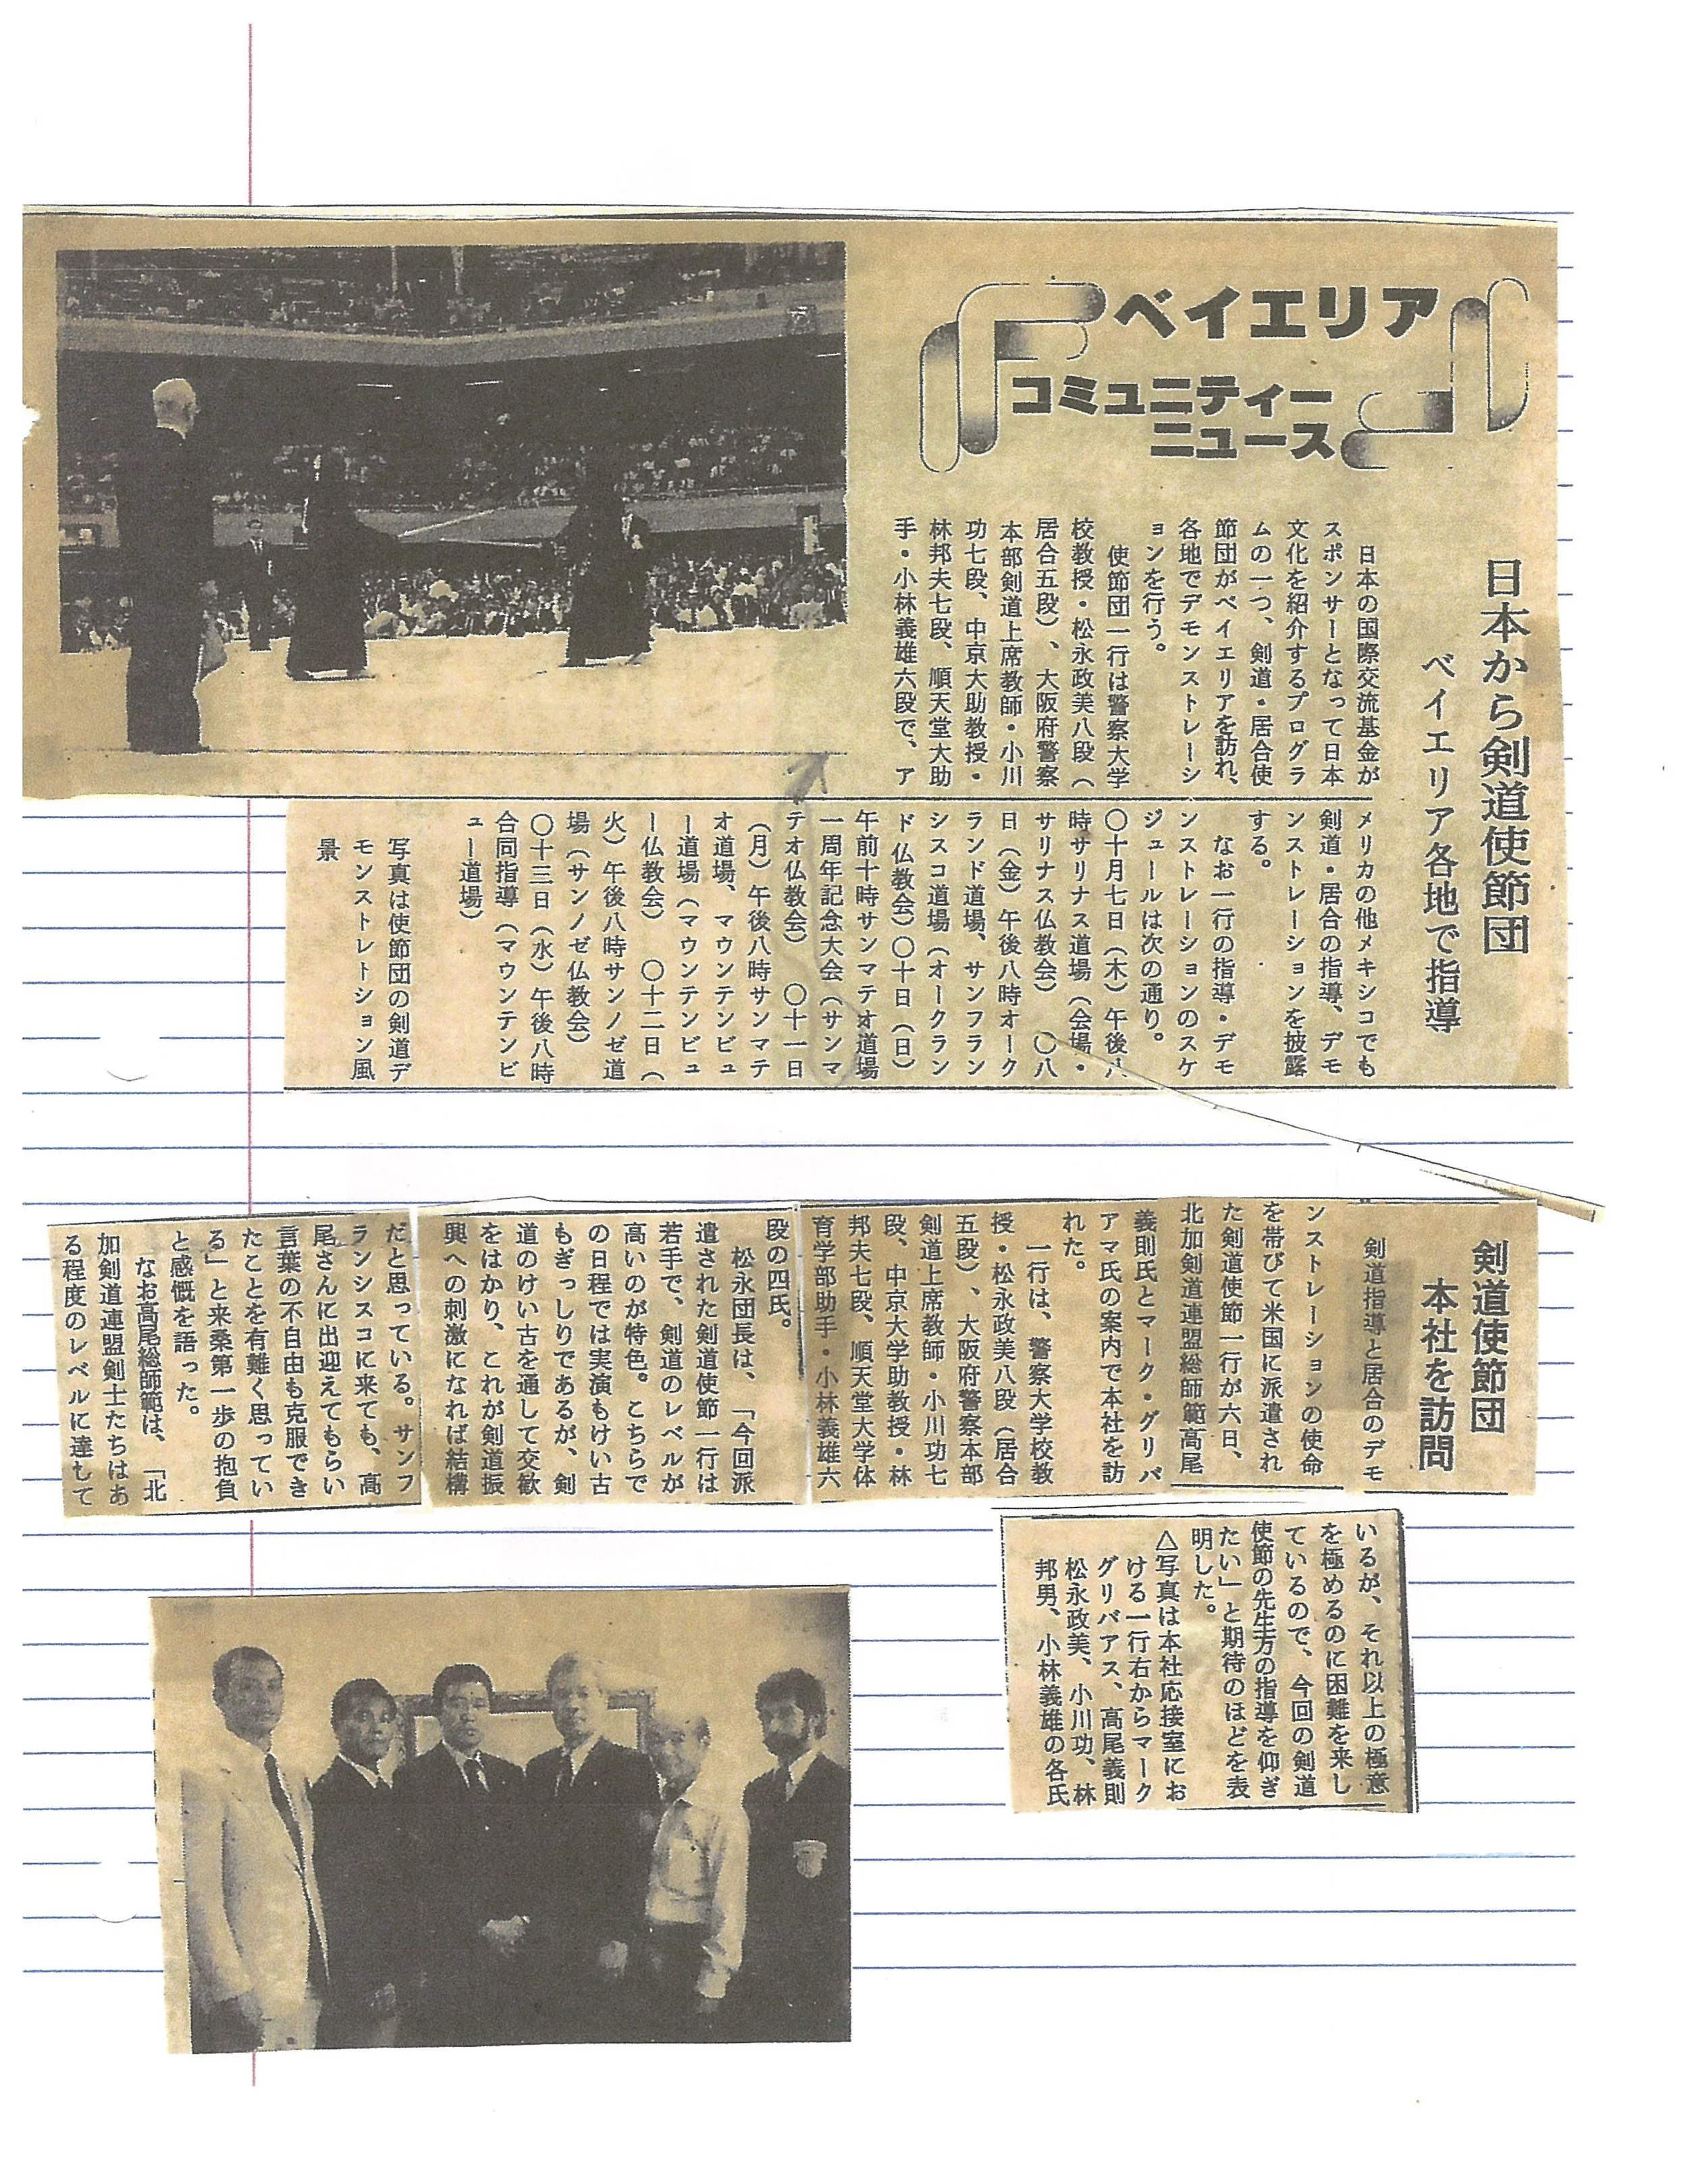 ベイエリア
コミュニティー
ニュース
日本から剣道使節団
ベイエリア各地で指導
日本の国際交流基金が
スポンサーとなって日本
文化を紹介するプログラ
ムの一つ、剣道・居合使
節団がベイエリアを訪れ、
各地でデモンストレーシ
ョンを行う。
使節団一行は警察大学
校教授・松永政美八段（
居合五段）、大阪府警察
本部剣道上席教師・小川
功七段、中京大助教授・
林邦夫七段、順天堂大助
手・小林義雄六段で、ア
メリカの他メキシコでも
剣道・居合の指導、デモ
ンストレーションを披露
する。
なお一行の指導・デモ
ンストレーションのスケ
ジュールは次の通り。
〇十月七日（木）午後八
時サリナス道場（会場・
サリナス仏教会）　〇八
日（金）午後八時オーク
ランド道場、サンフラン
シスコ道場（オークラン
ド仏教会）〇十日（日）
午前十時サンマテオ道場
一周年記念大会（サンマ
テオ仏教会）　〇十一日
（月）午後八時サンマテ
オ道場、マウンテンビュ
ー道場（マウンテンビュ
ー仏教会）　〇十二日（
火）午後八時サンノゼ道
場（サンノゼ仏教会）
〇十三日（水）午後八時
合同指導（マウンテンビ
ュー道場）
写真は使節団の剣道デ
モンストレーション風
景
剣道使節団
本社を訪問
剣道指導と居合のデモ
ンストレーションの使命
を帯びて米国に派遣され
た剣道使節一行が六日、
北加剣道連盟総師範高尾
義則氏とマーク・グリバ
アマ氏の案内で本社を訪
れた。
一行は、警察大学校教
授・松永政美八段（居合
五段）、大阪府警察本部
剣道上席教師・小川功七
段、中京大学助教授・林
邦夫七段、順天堂大学体
育学部助手・小林義雄六
段の四氏。
松永団長は、「今回派
遣された剣道使節一行は
若手で、剣道のレベルが
高いのが特色。こちらで
の日程では実演もけい古
もぎっしりであるが、剣
道のけい古を通して交歓
をはかり、これが剣道振
興への刺激になれば結構
だと思っている。サンフ
ランシスコに来ても、高
尾さんに出迎えてもらい
言葉の不自由も克服でき
たことを有難く思ってい
る」と来桑第一歩の抱負
と感慨を語った。
なお高尾総師範は、「北
加剣道連盟剣士たちはあ
る程度のレベルに達して
いるが、それ以上の極意
を極めるのに困難を来し
ているので、今回の剣道
使節の先生方の指導を仰ぎ
たい」と期待のほどを表
明した。
△写真は本社応接室にお
ける一行右からマーク
グリバアス、高尾義則
松永政美、小川功、林
邦男、小林義雄の各氏